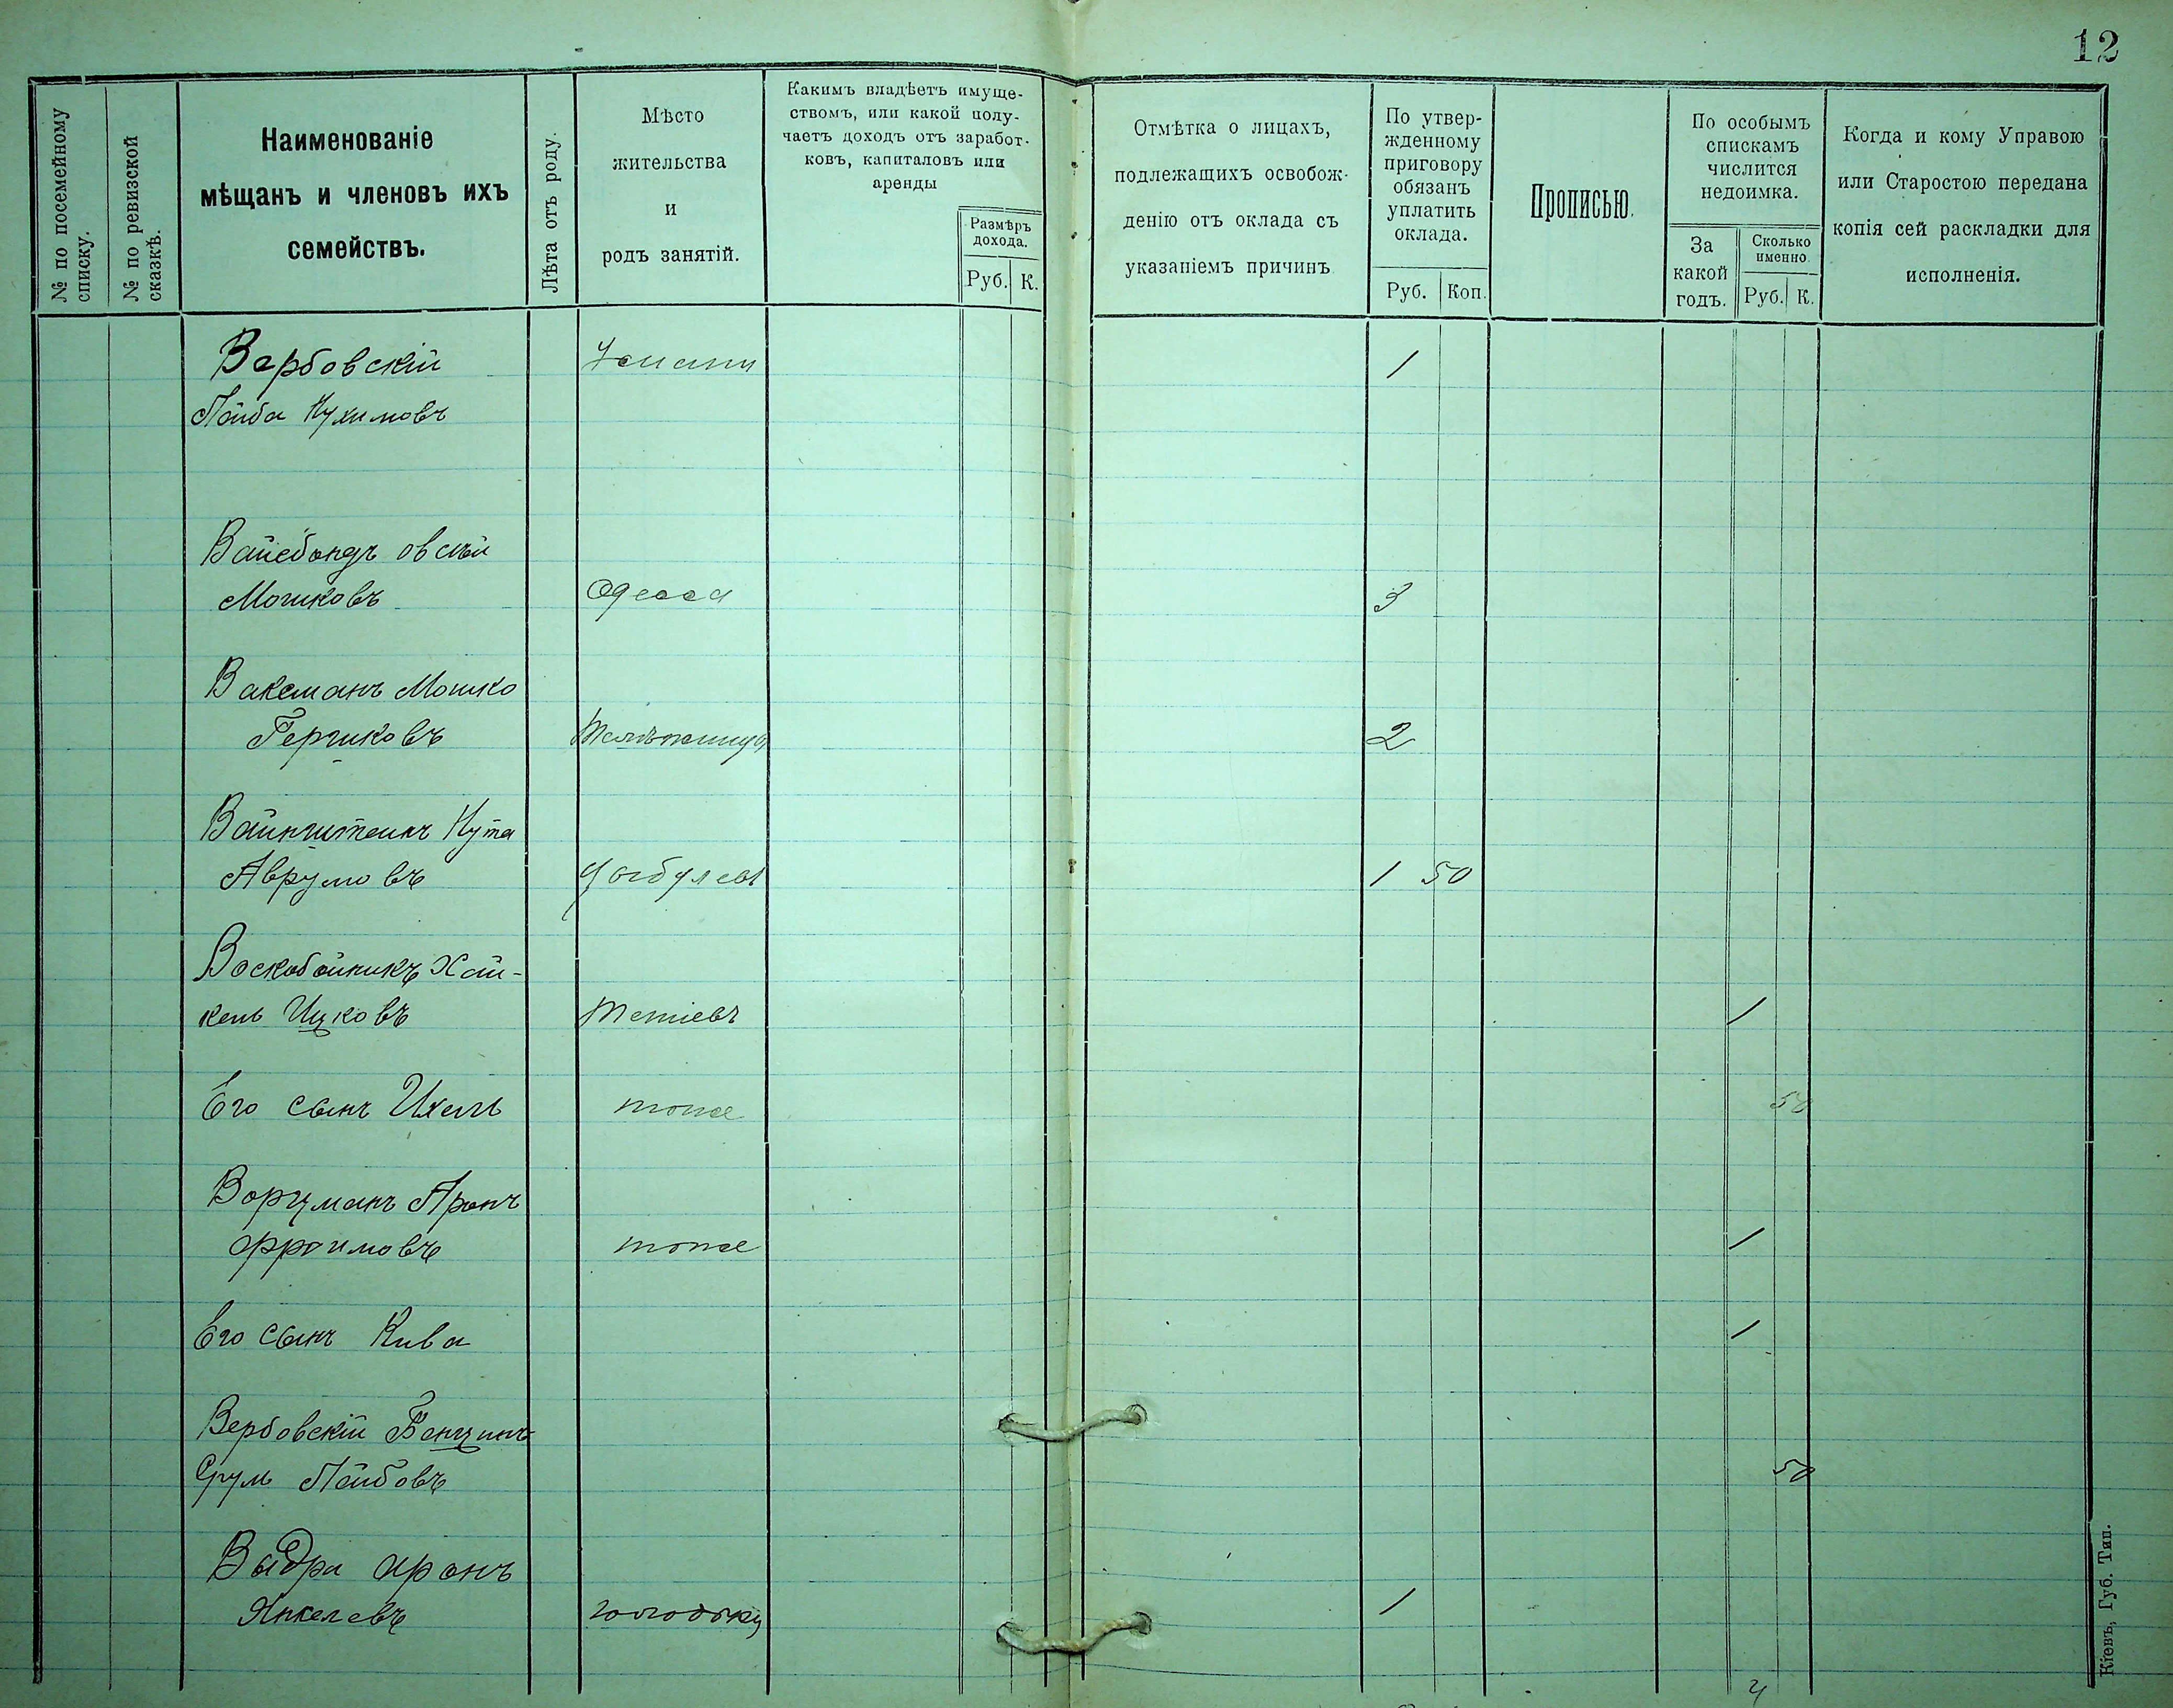 12
№ по посемейному
списку.
№ по ревизской
сказкѣ.
Наименованіе
мѣщанъ и членовъ ихъ
семействъ.
Лѣта отъ роду.
Мѣсто
жительства
и
родъ занятій.
Какимъ владѣетъ имуще-
ствомъ, или какой полу-
чаетъ доходъ отъ заработ-
ковъ, капиталовъ или
аренды
Размѣръ
дохода.
Руб. К.
Отмѣтка о лицахъ,
подлежащихъ освобож-
денію отъ оклада съ
указаніемъ причинъ
По утвер-
жденному
приговору
обязанъ
уплатить
оклада.
Руб. Коп.
Прописью.
По особымъ
спискамъ
числится
недоимка.
За
какой
годъ.
Сколько
именно.
Руб. К.
Когда и кому Управою
или Старостою передана
копія сей раскладки для
исполненія.
Вербовскій Умань 1
Лейба Нухимовъ
Вайсбандъ Овсѣй
Мошковъ Одесса 3
Ваксманъ Мошко
Гершковъ 2
Вайнштейнъ Нута
Аврумовъ Цыбулевъ 1 50
Воскобойникъ Хай-
кель Ицковъ Тетіевъ 1
Его сынъ Ихель тоже 50
Ворцманъ Аронъ
Фроимовъ тоже 1
Его сынъ Кива 1
Вербовскій Бенціинъ
Срулъ Лейбовъ 50
Выдра Аронъ
Янкелевъ 1
4
Кіевъ, Губ. Тип.